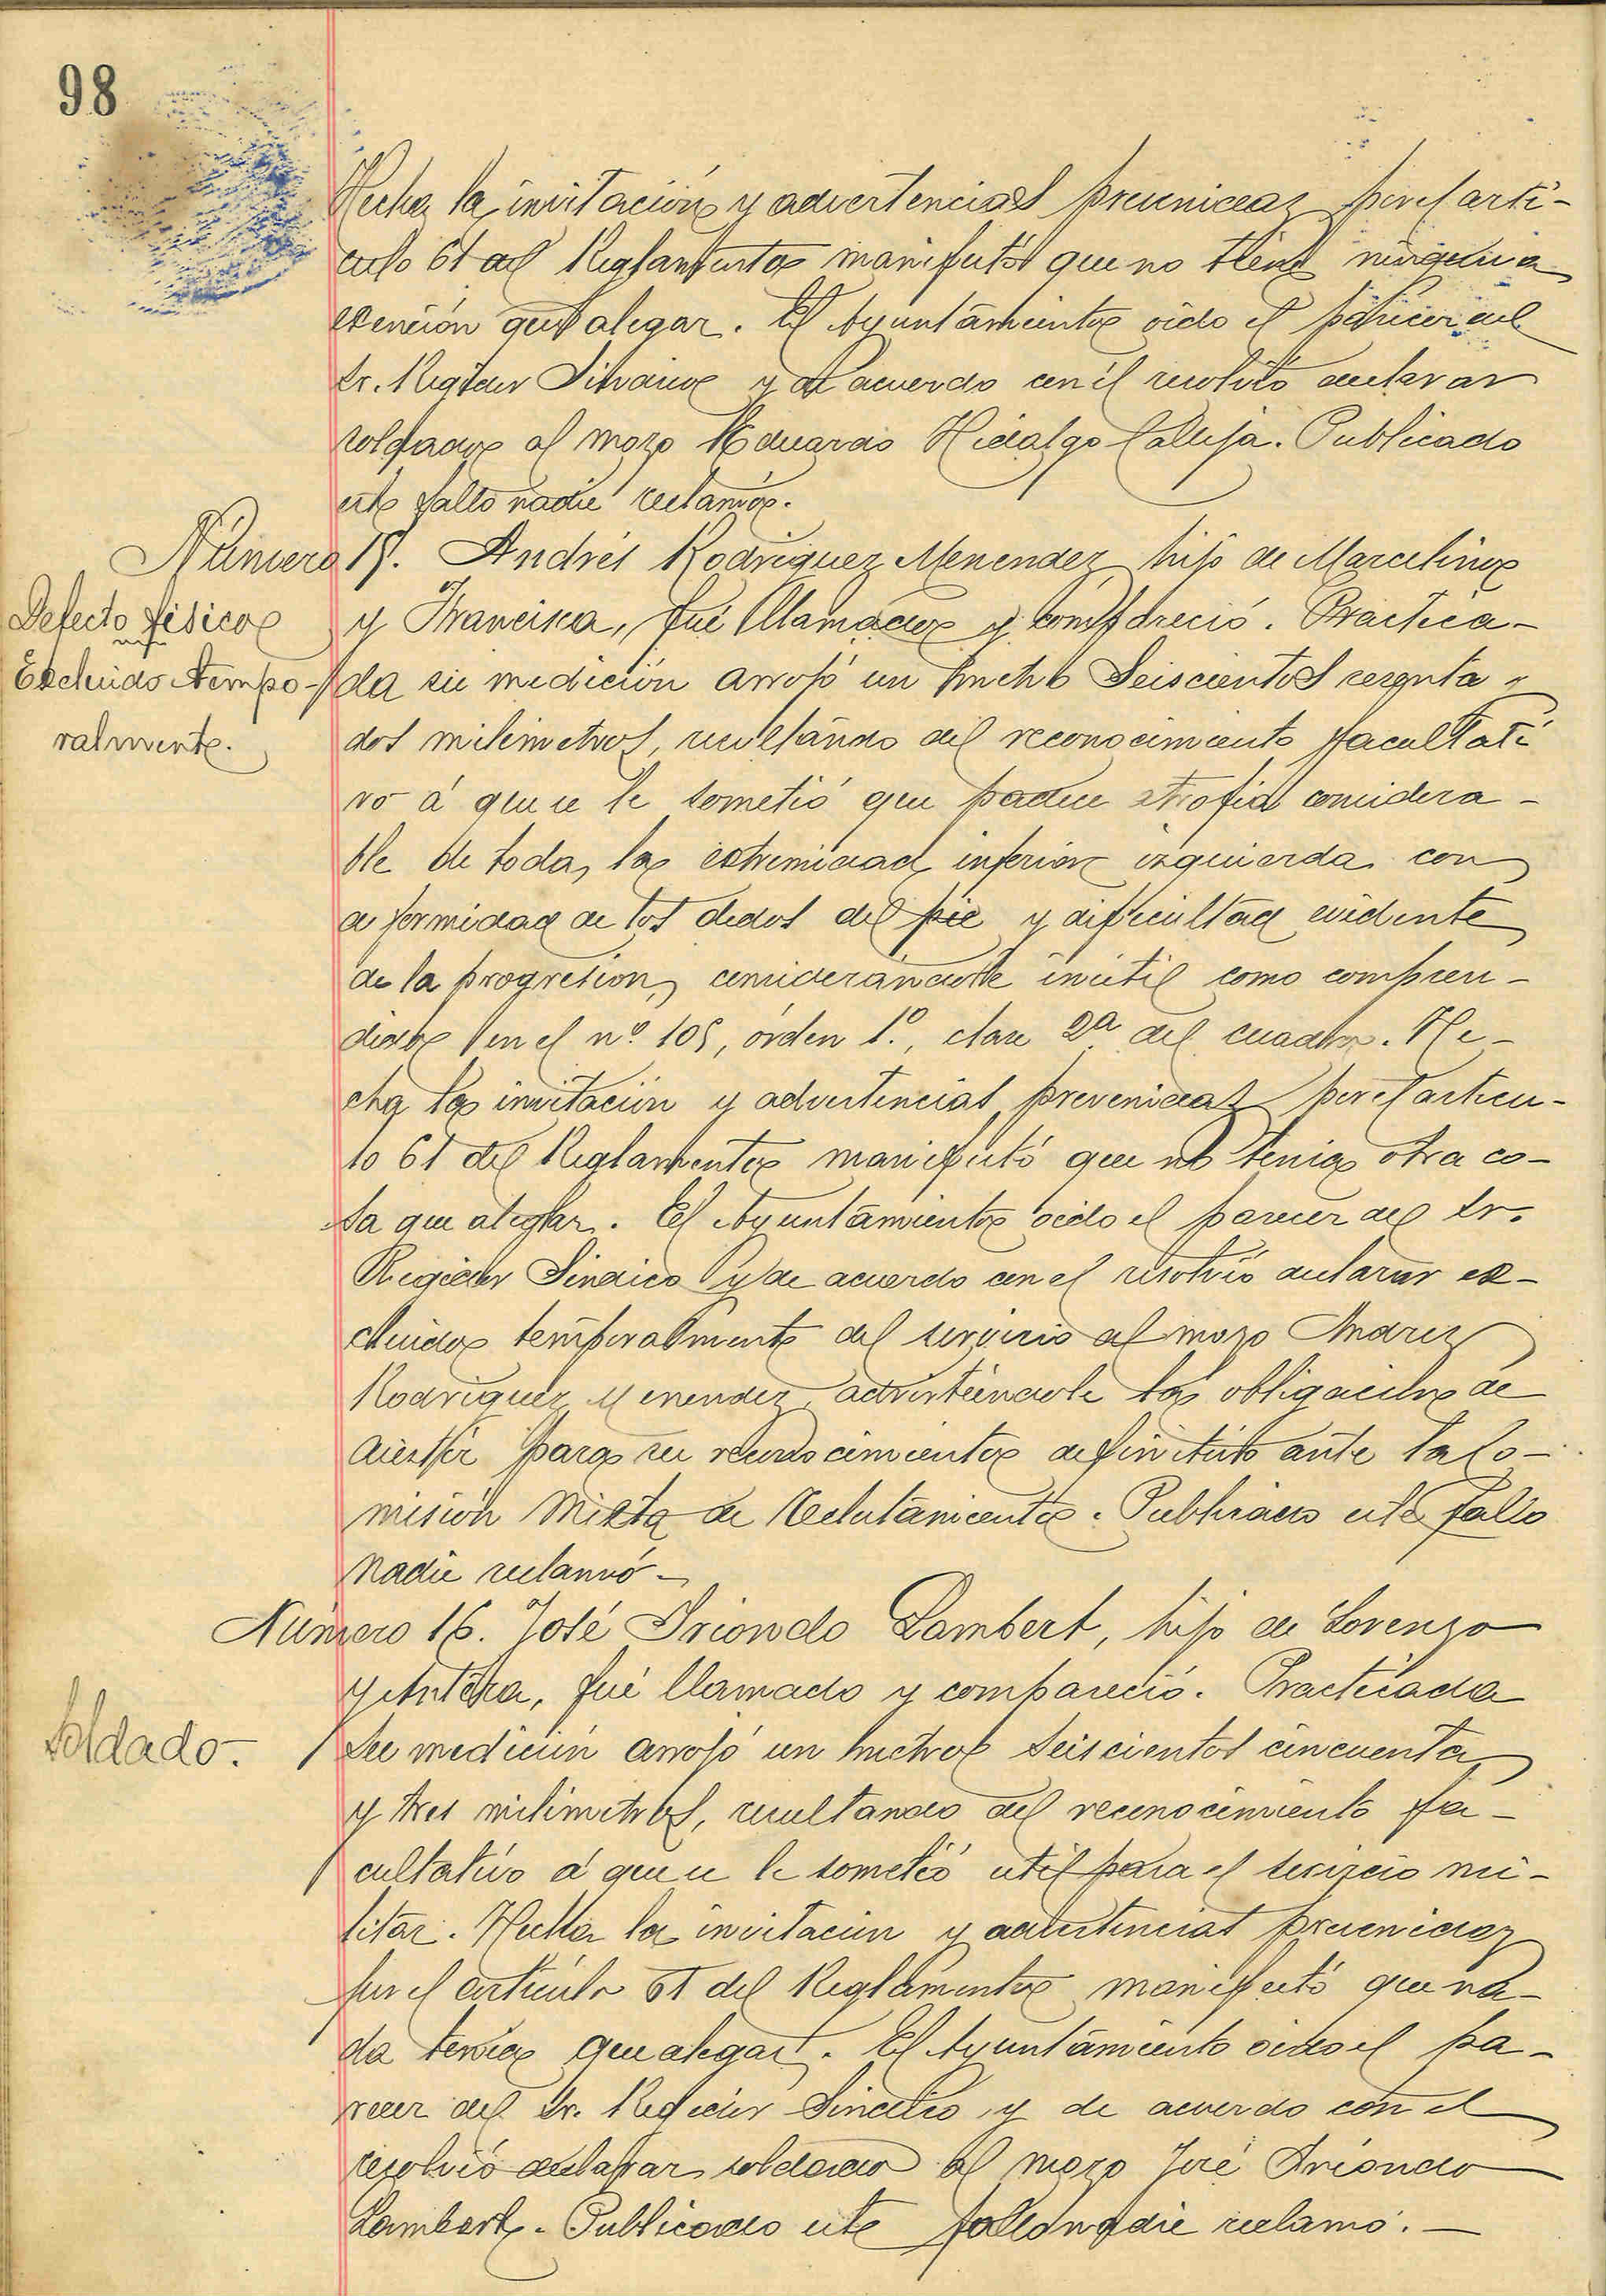 98
Hecha la invitación y advertencias prevenidas por el artí-
culo 61 del Reglamento manifestó que no tiene ninguna
exención que alegar. El Ayuntamiento oido el parecer del
Sr. Regidor Síndico y de acuerdo con él resolvió declarar
soldado al mozo Eduardo Hidalgo Calleja. Publicado
este fallo nadie reclamó.
Número 15. Andrés Rodriguez Menendez hijo de Marcelino
Defecto físico
y Francisca, fué llamado y compareció. Practica-
Excluido tempo-
da su medición arrojó un metro seiscientos sesenta y
ralmente.
dos milimetros, resultando del reconocimiento facultati
vo á que se le sometió que padece atrofia considera-
ble de toda la extremidad inferior izquierda con
deformidad de los dedos del pie y dificultad evidente
de la progresion, considerándole inútil como compren-
dido en el nº 105, órden 1º, clase 2ª del cuadro. He-
cha la invitación y advertencias prevenidas por el articu-
lo 61 del Reglamento manifestó que no tenia otra co-
sa que alegar. El Ayuntamiento oido el parecer del Sr.
Regidor Síndico y de acuerdo con el resolvió declarar ex-
cluido temporalmente del servicio al mozo Andrez
Rodriguez Menendez advirtiéndole la obligación de
asistir para su reconocimiento definitivo ante la Co-
misión Mixta de Reclutamiento. Publicado este fallo
nadie reclamó-
Número 16. José Iriondo Lambert, hijo de Lorenzo
y Antera, fué llamado y compareció. Practicada
Soldado.
su medición arrojó un metro seiscientos cincuenta
y tres milimetros, resultando del reconocimiento fa-
cultativo á que se le sometió util para el servicio mi-
litar. Hecha la invitación y advertencias prevenidaz
por el artículo 61 del Reglamento manifestó que na-
da tenia que alegar. El Ayuntamiento oido el pa-
recer del Sr. Regidor Síndico y de acuerdo con el
resolvió declarar soldado al mozo José Iriondo
Lambert. Publicado este fallo nadie reclamó.-